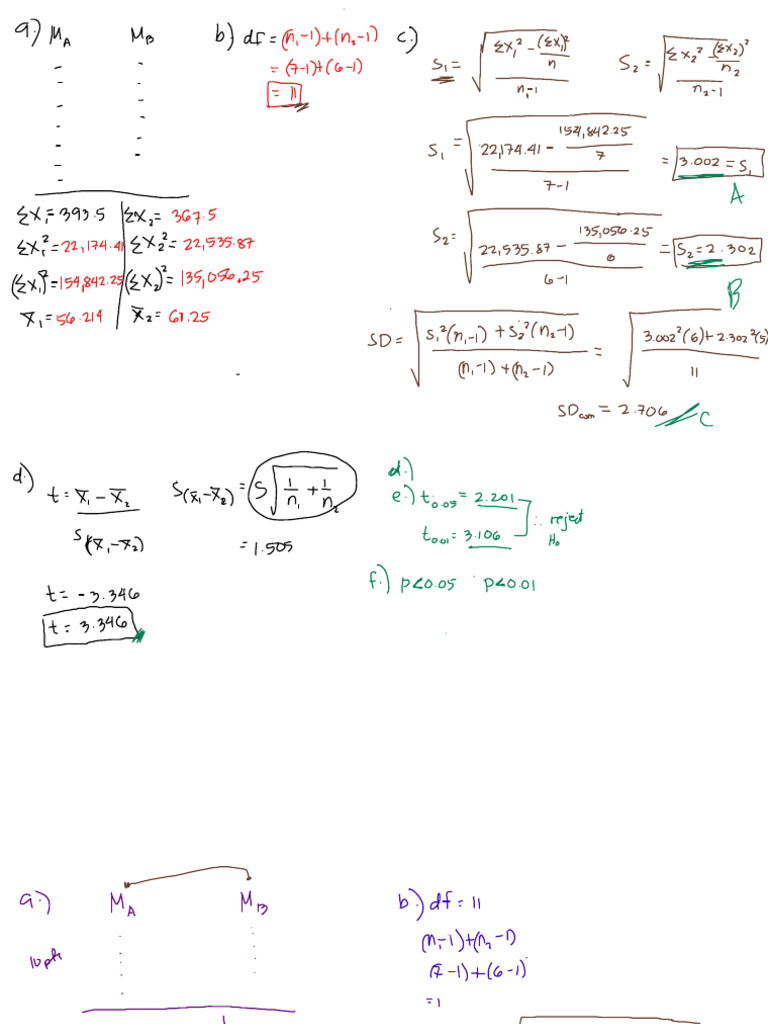 a) M_A M_B
- -
- -
- -
- -
- -
- -
-
ΣX₁ = 393.5 | ΣX₂ = 367.5
ΣX₁² = 22,174.41 | ΣX₂² = 22,535.87
(ΣX₁)² = 154,842.25 | (ΣX₂)² = 135,056.25
X̄₁ = 56.214 | X̄₂ = 61.25
b) df = (n₁-1)+(n₂-1)
= (7-1)+(6-1)
= 11
c) S₁ = √((ΣX₁² - (ΣX₁)²/n)/(n₁-1)) S₂ = √((ΣX₂² - (ΣX₂)²/n₂)/(n₂-1))
S₁ = √((22,174.41 - 154,842.25/7)/(7-1)) = 3.002 = S₁
A
S₂ = √((22,535.87 - 135,056.25/6)/(6-1)) = S₂ = 2.302
B
SD = √((S₁²(n₁-1) + S₂²(n₂-1))/((n₁-1)+(n₂-1))) = √((3.002²(6) + 2.302²(5))/11)
SD_com = 2.706 C
d.) t = (X̄₁ - X̄₂)/S(X̄₁-X̄₂) S(X̄₁-X̄₂) = S√(1/n₁ + 1/n₂)
= 1.505
t = -3.346
t = 3.346
d.)
e.) t₀.₀₅ = 2.201
t₀.₀₁ = 3.106
∴ reject H₀
f.) p<0.05 p<0.01
a.) M_A M_B
10pts
b.) df = 11
(n₁-1)+(n₂-1)
(7-1)+(6-1)
=1